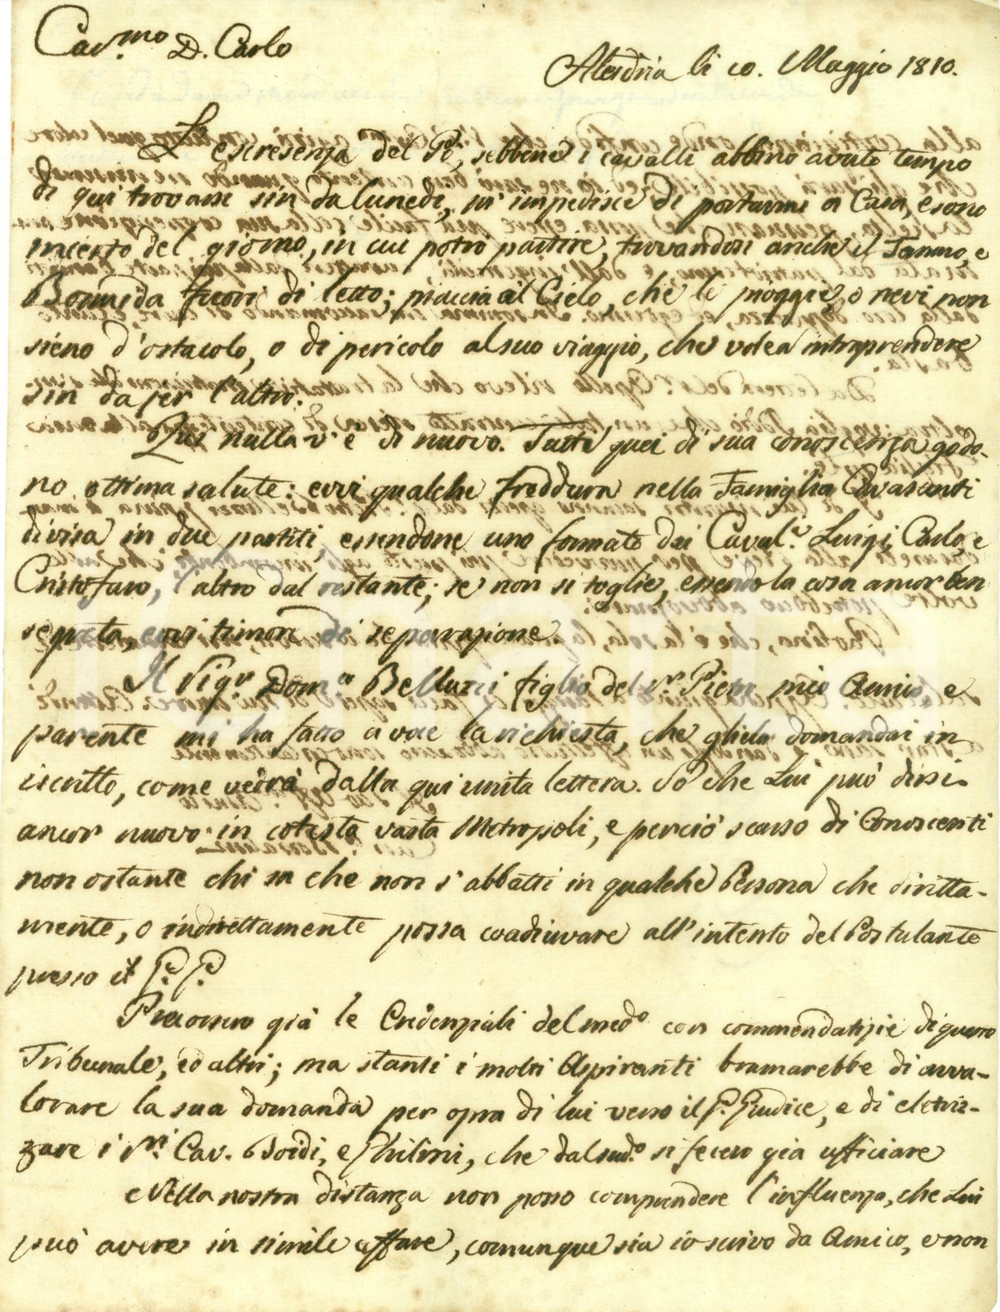 Car.mo D. Carlo
Alesdria li 10. Maggio 1810.
L'escresenza del Pò, sebbene i cavalli abbino avuto tempo
di qui trovarsi sin da lunedì, m'impedisce di portarmi a Casa, e sono
incerto del giorno, in cui potrò partire, trovandosi anche il Tanaro, e
Bormida fuori di letto; piaccia al Cielo, che le pioggie, o nevi non
sieno d'ostacolo, o di pericolo al suo viaggio, che volea intraprendere
sin da jer l'altro.
Qui nulla v'è di nuovo. Tutti quei di sua conoscenza godo-
no ottima salute: evvi qualche freddura nella Famiglia
divisa in due partiti essendone uno formato dai Caval.i Luigi, Carlo, e
Cristofaro, l'altro dal restante; se non si toglie, essendo la cosa ancor ben
segreta, evvi timore di separazione.
Il Sig.r Dom.co Belluzzi figlio del S.r Pietro mio Amico, e
parente mi ha fatto a voce la richiesta, che gliela domandai in
iscritto, come vedrà dalla qui unita lettera. So che Lui può dirsi
ancor nuovo in cotesta vasta Metropoli, e perciò scarso di Conoscenti
non ostante chi sa che non s'abbatti in qualche Persona che diritta-
mente, o indirettamente possa coadiuvare all'intento del Postulante
presso il G.e G.e
Precorsero già le Credenziali del med.o con commendatizie di questo
Tribunale, ed altri; ma stanti i molti Aspiranti bramarebbe di avva-
lorare la sua domanda per opra di lui verso il G. Giudice, e di elettriz-
zare i S.ri Cav. Boidi, e che dal sud.o si fecero già ufficiare
Nella nostra distanza non posso comprendere l'influenza, che Lui
può avere in simile affare, comunque sia io scrivo da Amico, e non